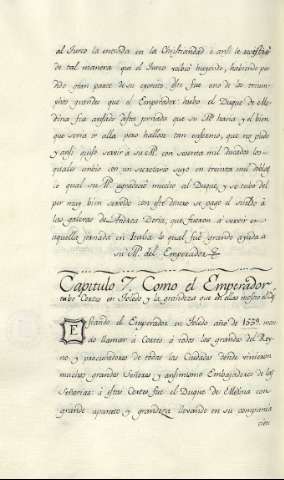 al Turco la entrada en la Christiandad è ansi le
de tal manera que el Turco volviò huyendo, habiendo per
dido gran parte de su exercito. Este fue uno de los trium
phos grandes que el Emperador tubo. el Duque de Me
dina fue avisado desta jornada que su Mᵈ. hacia y el bien
que seria ir ella pero hallose tan enfermo, que no pudo
y ansi quiso servir à su Mᵈ. con sesenta mil ducados los
quales embio con un secretario suyo en treinta mil doblas
lo qual su Mᵈ. agradeciò mucho al Duque, y se tubo del
por muy bien servido con este dinero se pago el sueldo à
las galeras de Andrea Doria, que fueron à servir en
aquella jornada en Italia lo qual fuè grande ayuda a
su Mᵈ. del Emperador
Capitulo 7. Como el Emperador
tubo Cortes en Toledo y la grandeza que en ellas mostro el
Estando el Emperador en Toledo año de 1539. man
do llamar à Cortes à todos los grandes del Rey
no y procuradores de todas las Ciudades donde vinieron
muchos grandes Señores y ansimismo Embajadores de las
Señorias: à estas Cortes fuè el Duque de Medina con
grande aparato y grandeza llevando en su compania
cien